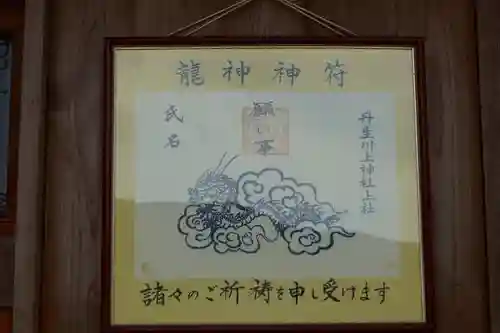 龍神神符
丹生川上神社上社
願い事
氏名
諸々のご祈祷を申し受けます